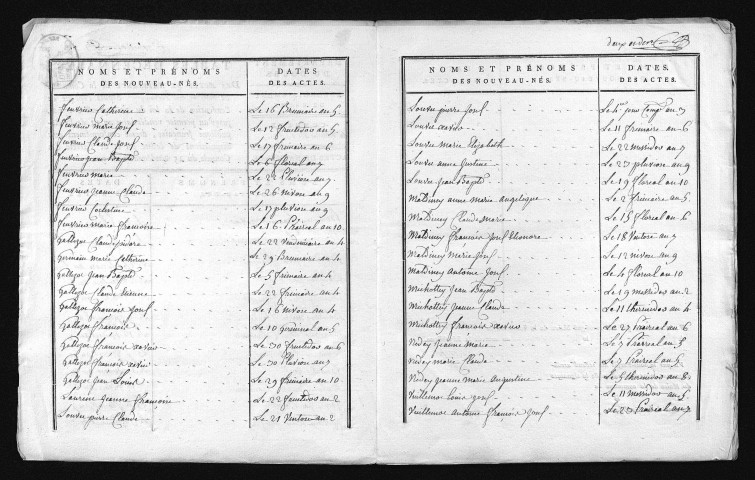 NOMS ET PRÉNOMS DES NOUVEAU-NÉS.
DATES DES ACTES.
Feuvrier Catherine Le 16 Brumaire an 5
Feuvrier marie Josf Le 12 fructidor an 5
Feuvrier Claude Josf Le 17 frimaire an 6
Feuvrier Jean Bapte Le 6 floréal an 7
Feuvrier marie Le 22 Pluviose an 7
Feuvrier Jeanne Claude Le 26 nivose an 9
Feuvrier Celestine Le 17 pluviose an 9
Feuvrier marie francoise Le 16 Prairial an 10
gallezot Claude Le 22 Vendemiaire an 4
germain marie Catherine Le 29 Brumaire an 4
gallezot Jean Bapte Le 5 frimaire an 4
gallezot Claude Etienne Le 22 frimaire an 4
gallezot francois Josf Le 16 nivose an 4
gallezot francois Le 10 germinal an 5
gallezot francois xavier Le 30 fructidor an 6
gallezot francois xavier Le 30 Pluviose an 7
gallezot Jean Louis Le 29 frimaire an 10
Laurent Jeanne francoise Le 22 fructidor an 2
Louvet pierre Claude Le 21 Ventose an 2
NOMS ET PRÉNOMS DES NOUVEAU-NÉS.
DATES DES ACTES.
Louvet pierre Josf Le 4e jour Comp. an 3
Louvet xavier Le 11 frimaire an 6
Louvet marie Elizabeth Le 22 messidor an 7
Louvet anne Justine Le 23 pluviose an 9
Louvet Jean Bapte Le 19 floréal an 10
Maldiney anne marie angelique Le 2 frimaire an 5
Maldiney Claude marie Le 15 floréal an 6
Maldiney francois Josf Eleonore Le 18 Ventose an 7
Maldiney marie Josf Le 12 nivose an 9
Maldiney Antoine Josf Le 4 floréal an 10
Michottey Jean Bapte Le 19 messidor an 2
Michottey Jeanne Claude Le 11 thermidor an 4
Michottey francois xavier Le 27 Prairial an 6
Nidey Jeanne marie Le 7 Prairial an 3
Nidey marie Claude Le 7 Prairial an 5
Nidey Jeanne marie augustine Le 5 thermidor an 8
Vuillemot Louis Josf Le 11 messidor an 5
Vuillemot Antoine francois Josf Le 23 Prairial an 7